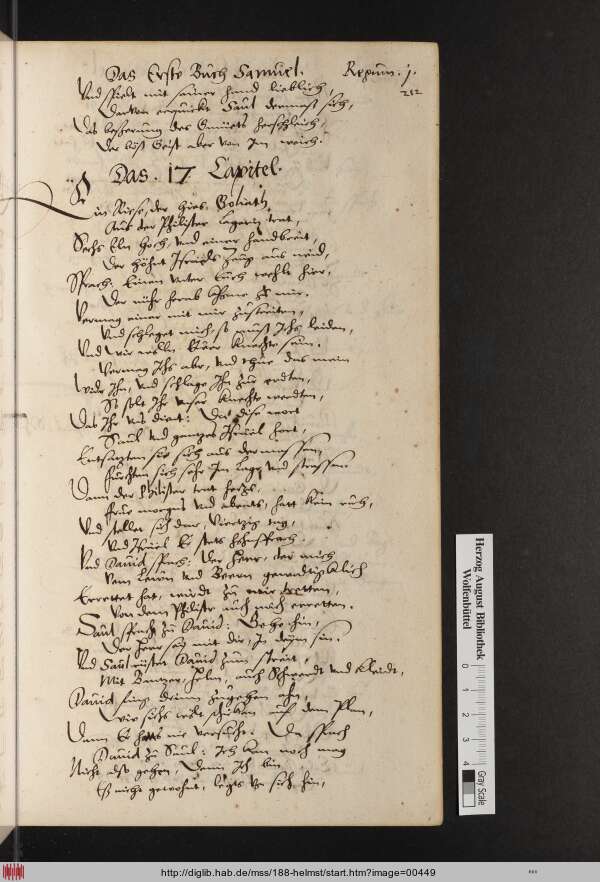 Das Erste Buch Samuel. Regum. 1.
212
Vnd spielt mit seiner hand lieblich,
Dauon erquickt Saul dermasß sich,
Das besserung des Gmüets
Der böst Geist aber von Im weich.
Das. 17 Capitel.
Ein Riese, der hies Goliath,
Aus der Philister lager trat,
Sechs Eln hoch, vnd einer handbreit,
Der höhnt Israels Zeug aus neid,
Sprach: Einen vnter Euch wehlt hier,
Der mihr herab kome zu mir.
Vermag einer mit mir zustreiten,
Vnd schleget mich, so mus Ichs leiden,
Vnd wir wölln Euer knechte sein.
Vermag Ichs aber, vnd thue das mein
wider Ihn, vnd schlage Ihn zu todten,
So solt Ihr vnser knechte werdten,
Das Ihr vns dient: Da dise wort
Saul vnd gantzes Israel hort,
Entsatzten sie sich aus der massen
furchten sich sehr Im lager vnd strassen.
Dann der Philister trat
frue morgens vnd abents, hatt kein ruh,
Vnd stellet sich dar, viertzig tag,
Vnd Israel Er stets
Vnd Dauid sprach: Der Herr, der mich
Vom Lewen vnd Beern gewaltigklich
Errettet hat, wirdt zu mir tretten,
Von dem Philister auch mich erretten.
Saul sprach zu Dauid: Gehe hin,
Der Herr sey mit dir, In deym sin.
Vnd Saul rüstet Dauid zum streit,
Mit Pantzer, helm, auch Schwerdt vnd kleidt,
Dauid fieng drinn zugehen ahn,
auf dem Plan,
Dann Er hatts nie versucht: Da sprach
Dauid zu Saul: Ich kan noch mag
Nicht also gehen, dann Ich bin
Es nicht gewohnt, legts von sich hin,
Herzog August Bibliothek
Wolfenbüttel
0 1 2 3 4
Gray Scale
http://diglib.hab.de/mss/188-helmst/start.htm?image=00449